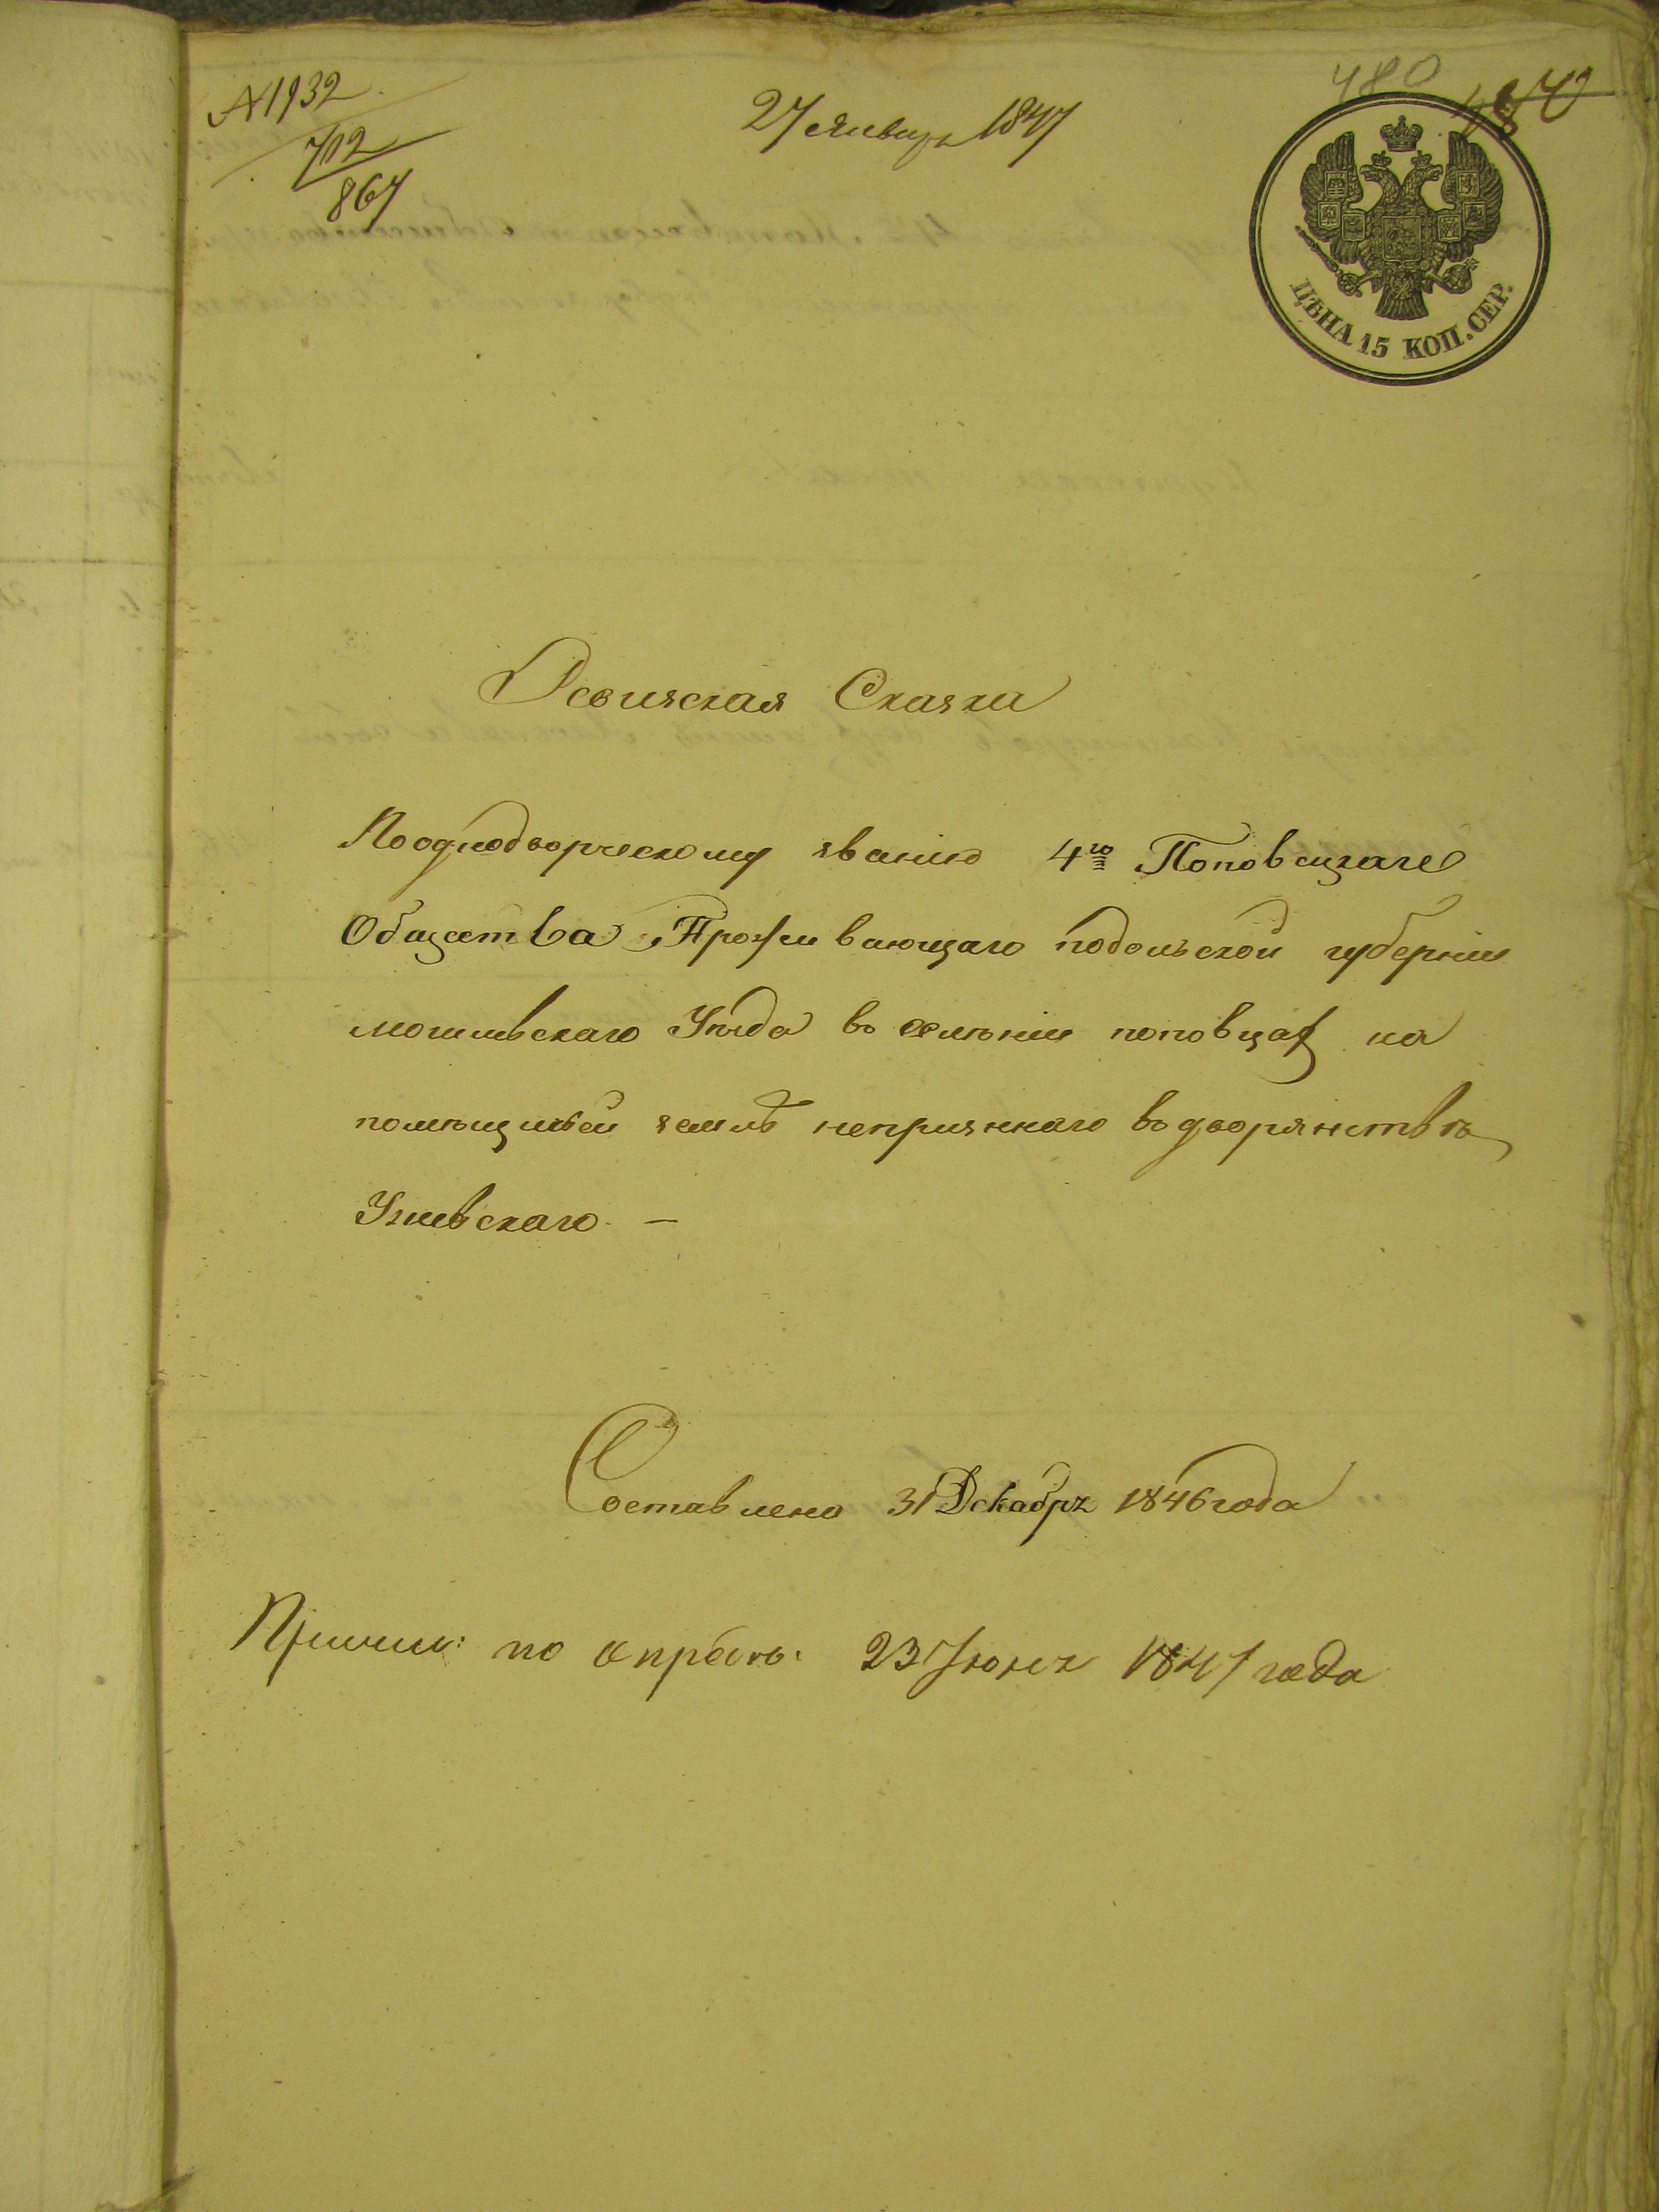 № 1932
712
867
27 Января 1847
480
ЦѢНА 15 КОП. СЕР.
Ревизская Сказка
По однодворческому званию 4го Поповецкаго
Общества Проживающаго подольской губернии
могилевскаго Уезда въ селении поповцах на
помещичьей земле непризннаго въ дворянстве
Улиевскаго. —
Составлена 31 Декабря 1846 года
по 23 Июня 1847 года